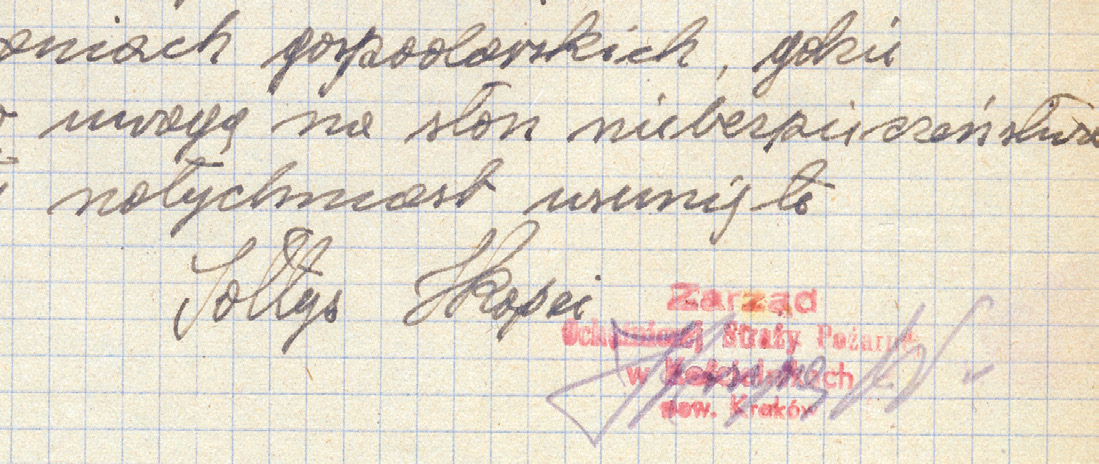 aniach gospodarskich, gdzie
uwagę na stan niebezpieczeństwa
natychmiast usunięto
Sołtys Skopei
Zarząd
Ochotniczej Straży Pożarn
w Kościelnikach
pow. Kraków